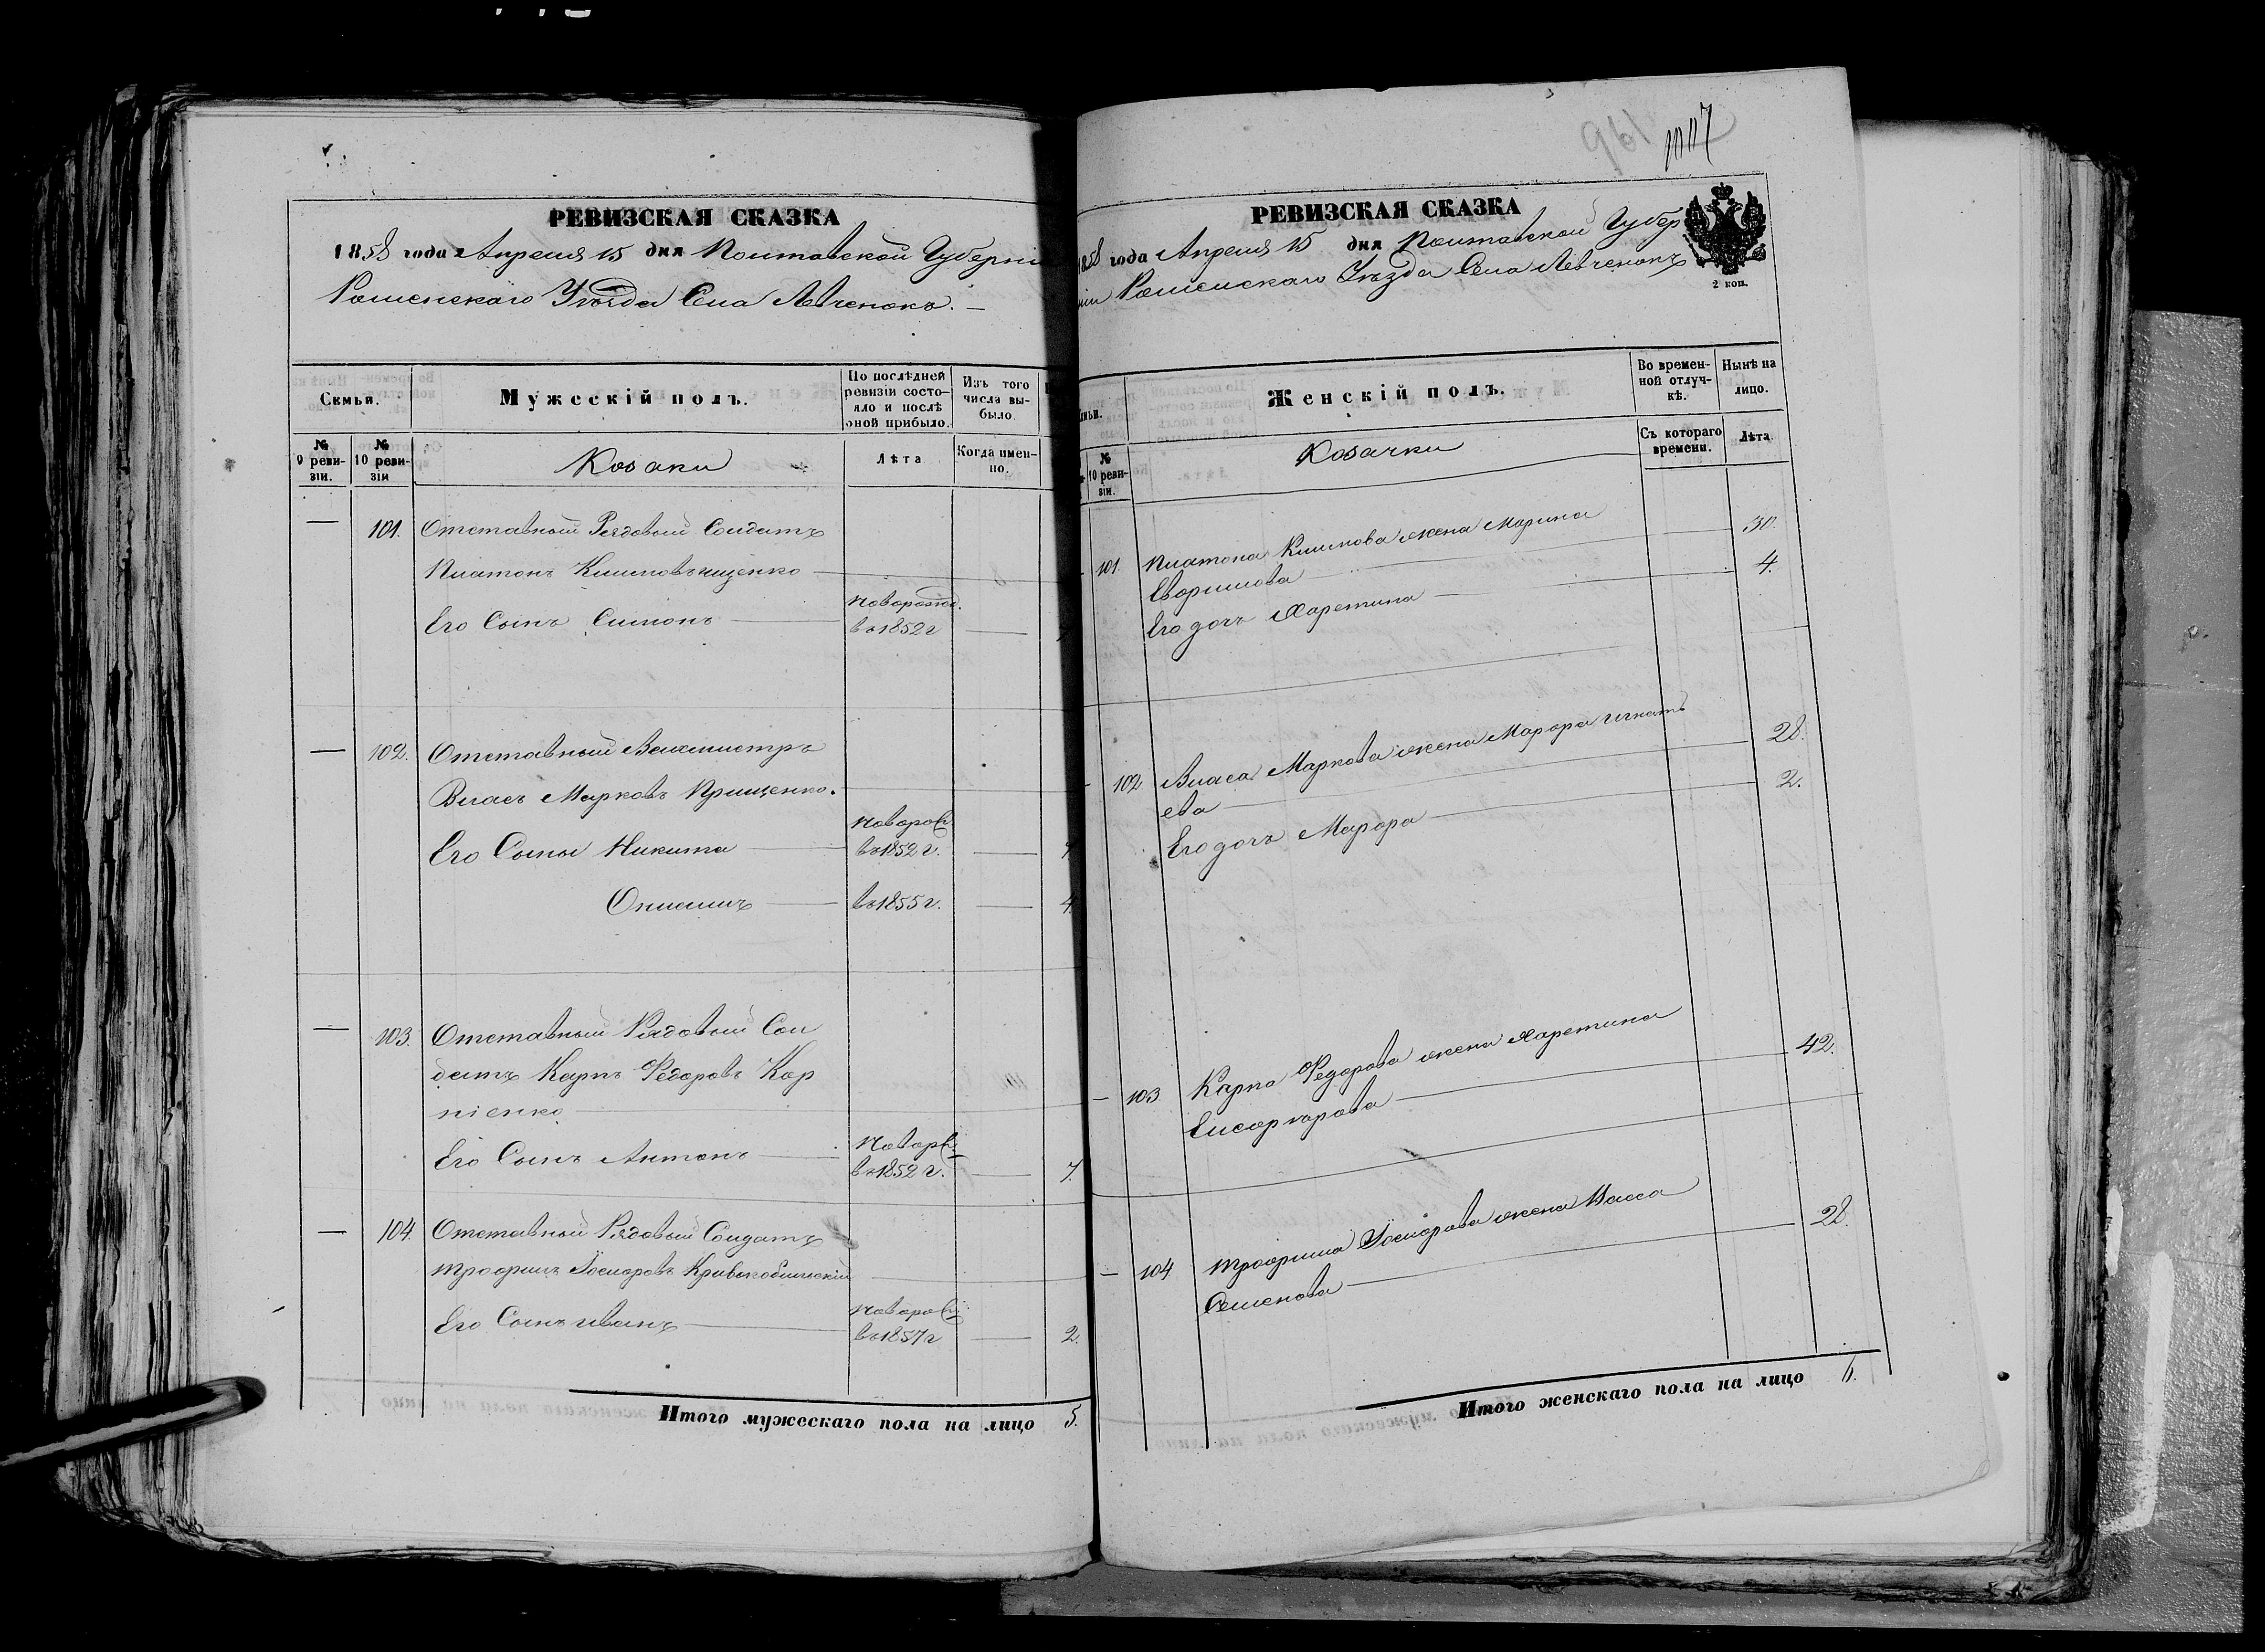 РЕВИЗСКАЯ СКАЗКА
1858 года Апреля 15 дня Полтавской Губерніи
Роменскаго Уѣзда Села Левченокъ. —
Семьи.
Мужескій полъ.
По послѣдней ревизіи состояло и послѣ оной прибыло.
Изъ того числа выбыло.
№ 9 ревизіи.
№ 10 ревизіи
Козаки
Лѣта
Когда именно.
— 101. Отставный Рядовый Солдатъ
Платонъ
Его Сынъ Симонъ — Новорожд. въ 1852 г —
— 102. Отставный Вахмистръ
Власъ Марковъ Прищенко.
Его Сыны Никита — Новорож въ 1852 г. — 7
Онисимъ — въ 1855 г. — 4.
— 103. Отставный Рядовый Сол
датъ Карпъ Федоровъ Кор
ніенко
Его Сынъ Антонъ — Новорж въ 1852 г. — 7.
— 104. Отставный Рядовый Солдатъ
Трофимъ Іосифовъ
Его Сынъ Иванъ — Новорож въ 1857 г — 2.
Итого мужескаго пола на лицо 5.
961
РЕВИЗСКАЯ СКАЗКА
1858 года Апреля 15 дня Полтавской Губер
ніи Роменскаго Уѣзда Села Левченокъ
2 коп.
Женскій полъ.
Во временной отлучкѣ.
Нынѣ на лицо.
№ 10 ревизіи.
Козачки
Съ котораго времени.
Лѣта
101. Платона Климова жена Марина — 30.
Его дочь Харетина — 4.
102 Власа Маркова жена Марфа Игнать
ева — 28.
Его дочь Марфа — 2.
— 103. Карпа Федорова жена Харетина
— 42.
— 104 Трофима Іосифова жена Васса
Семенова — 28.
Итого женскаго пола на лицо 6.